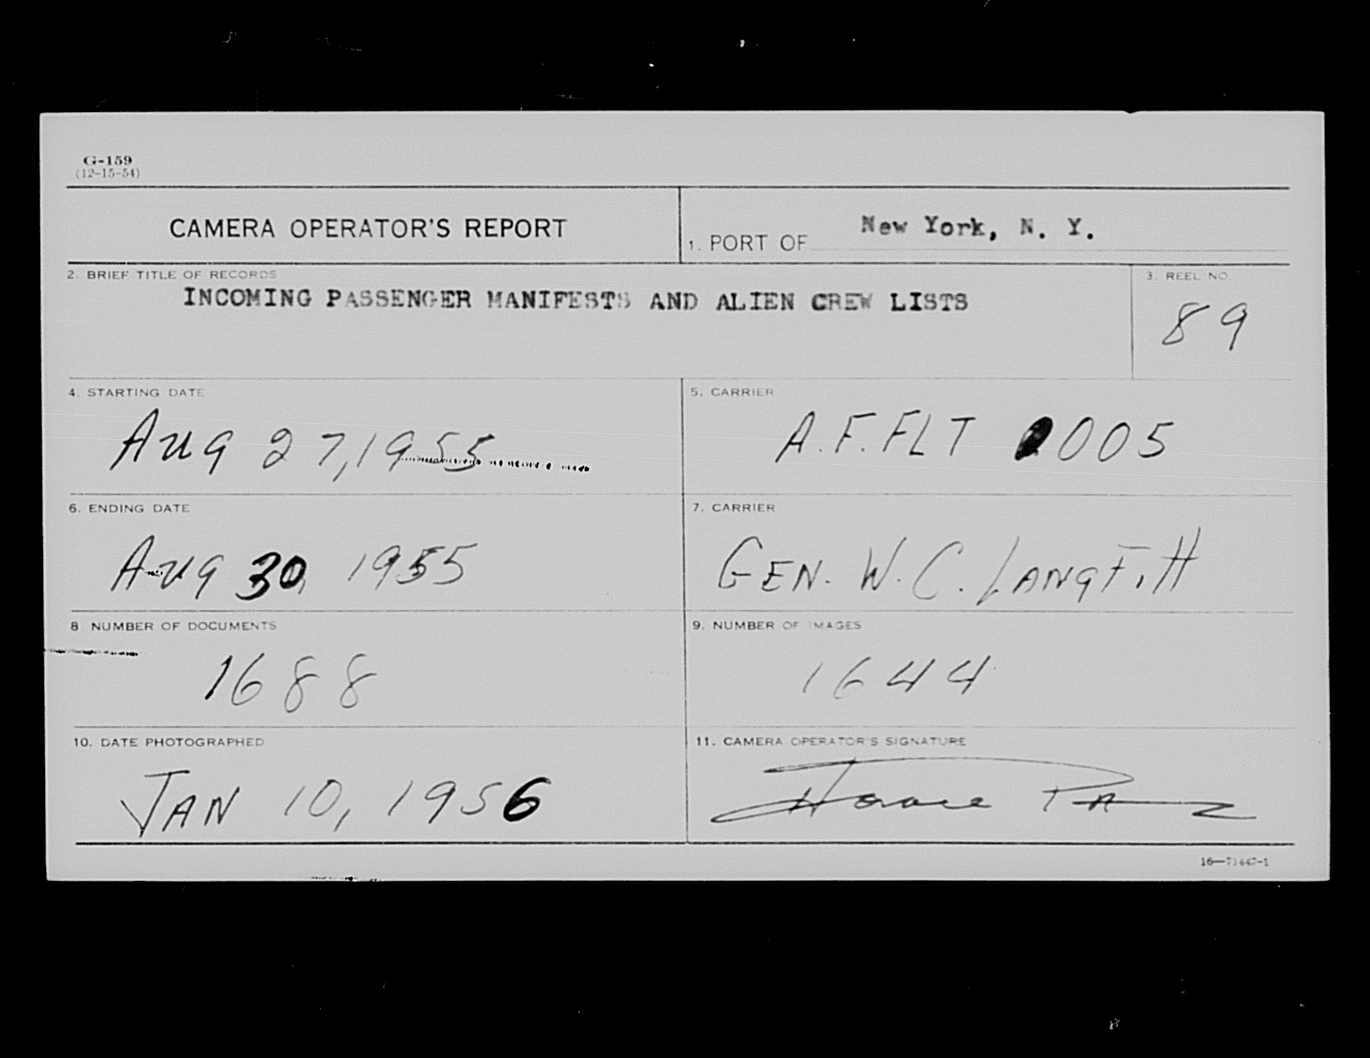 G-159
(12-15-54)
CAMERA OPERATOR'S REPORT
1. PORT OF New York, N. Y.
2. BRIEF TITLE OF RECORDS
INCOMING PASSENGER MANIFESTS AND ALIEN CREW LISTS
3. REEL NO.
89
4. STARTING DATE
Aug 27, 1955
5. CARRIER
A.F. FLT 005
6. ENDING DATE
Aug 30, 1955
7. CARRIER
GEN. W. C. LANGFITT
8 NUMBER OF DOCUMENTS
1688
9. NUMBER OF IMAGES
1644
10. DATE PHOTOGRAPHED
JAN 10, 1956
11. CAMERA OPERATOR'S SIGNATURE
Horace
16—71447-1